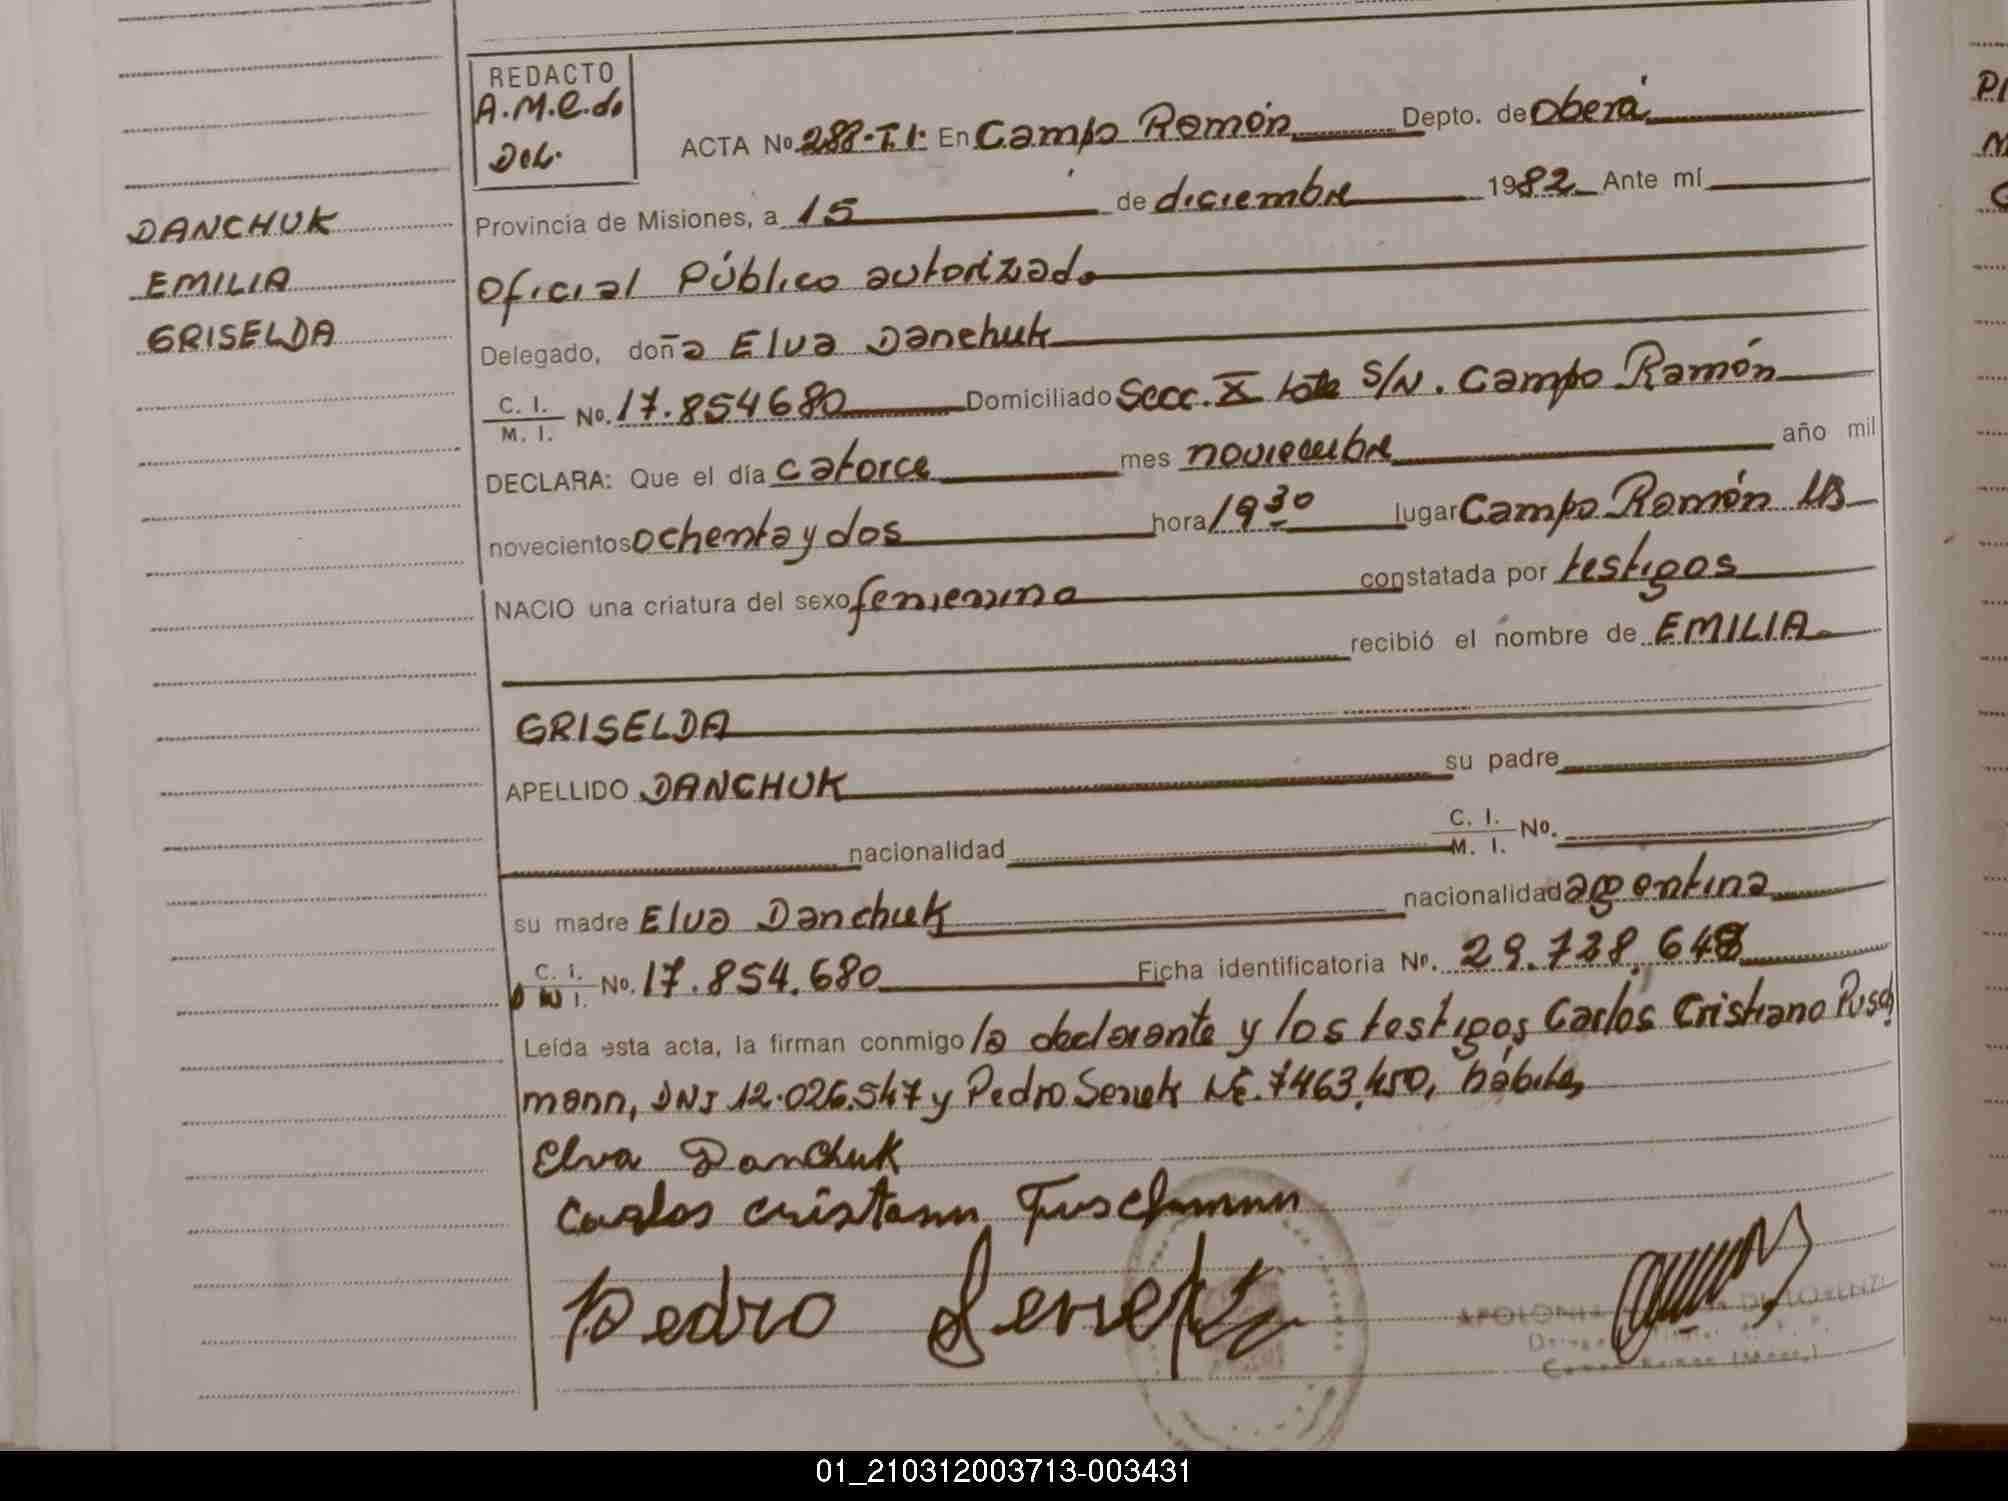 REDACTO
A.M.C.do
Del.
ACTA No 288-T.I. En Campo Ramón Depto. de Oberá
Provincia de Misiones, a 15 de diciembre 1982 Ante mí
DANCHUK
EMILIA
GRISELDA
Oficial Público autorizado
Delegado, doña Elva Danchuk
C. I.
M. I. No. 17.854680 Domiciliado Secc. X Lote S/N. Campo Ramón
DECLARA: Que el día catorce mes noviembre año mil
novecientos ochenta y dos hora 19 30 lugar Campo Ramón
NACIO una criatura del sexo femenino constatada por testigos
recibió el nombre de EMILIA
GRISELDA
APELLIDO DANCHUK su padre
nacionalidad C. I.
M. I. No.
su madre Elva Danchuk nacionalidad argentina
C. I.
D N I. No. 17.854.680 Ficha identificatoria No. 29.728.648
Leída esta acta, la firman conmigo la declarante y los testigos Carlos Cristiano Pusch
mann, DNI 12.026.547 y Pedro Senek LE. 7463.450, hábiles
Elva Danchuk
Carlos Cristiann Puschmann
Pedro Senek
DE LORENZI
01_210312003713-003431